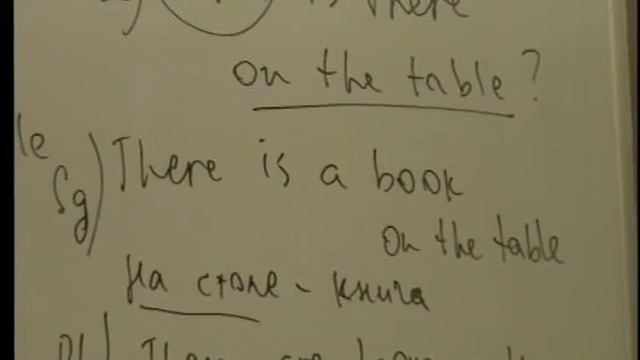 is there
on the table?
le
Sg) There is a book
on the table
На столе - книга
Pl) There are